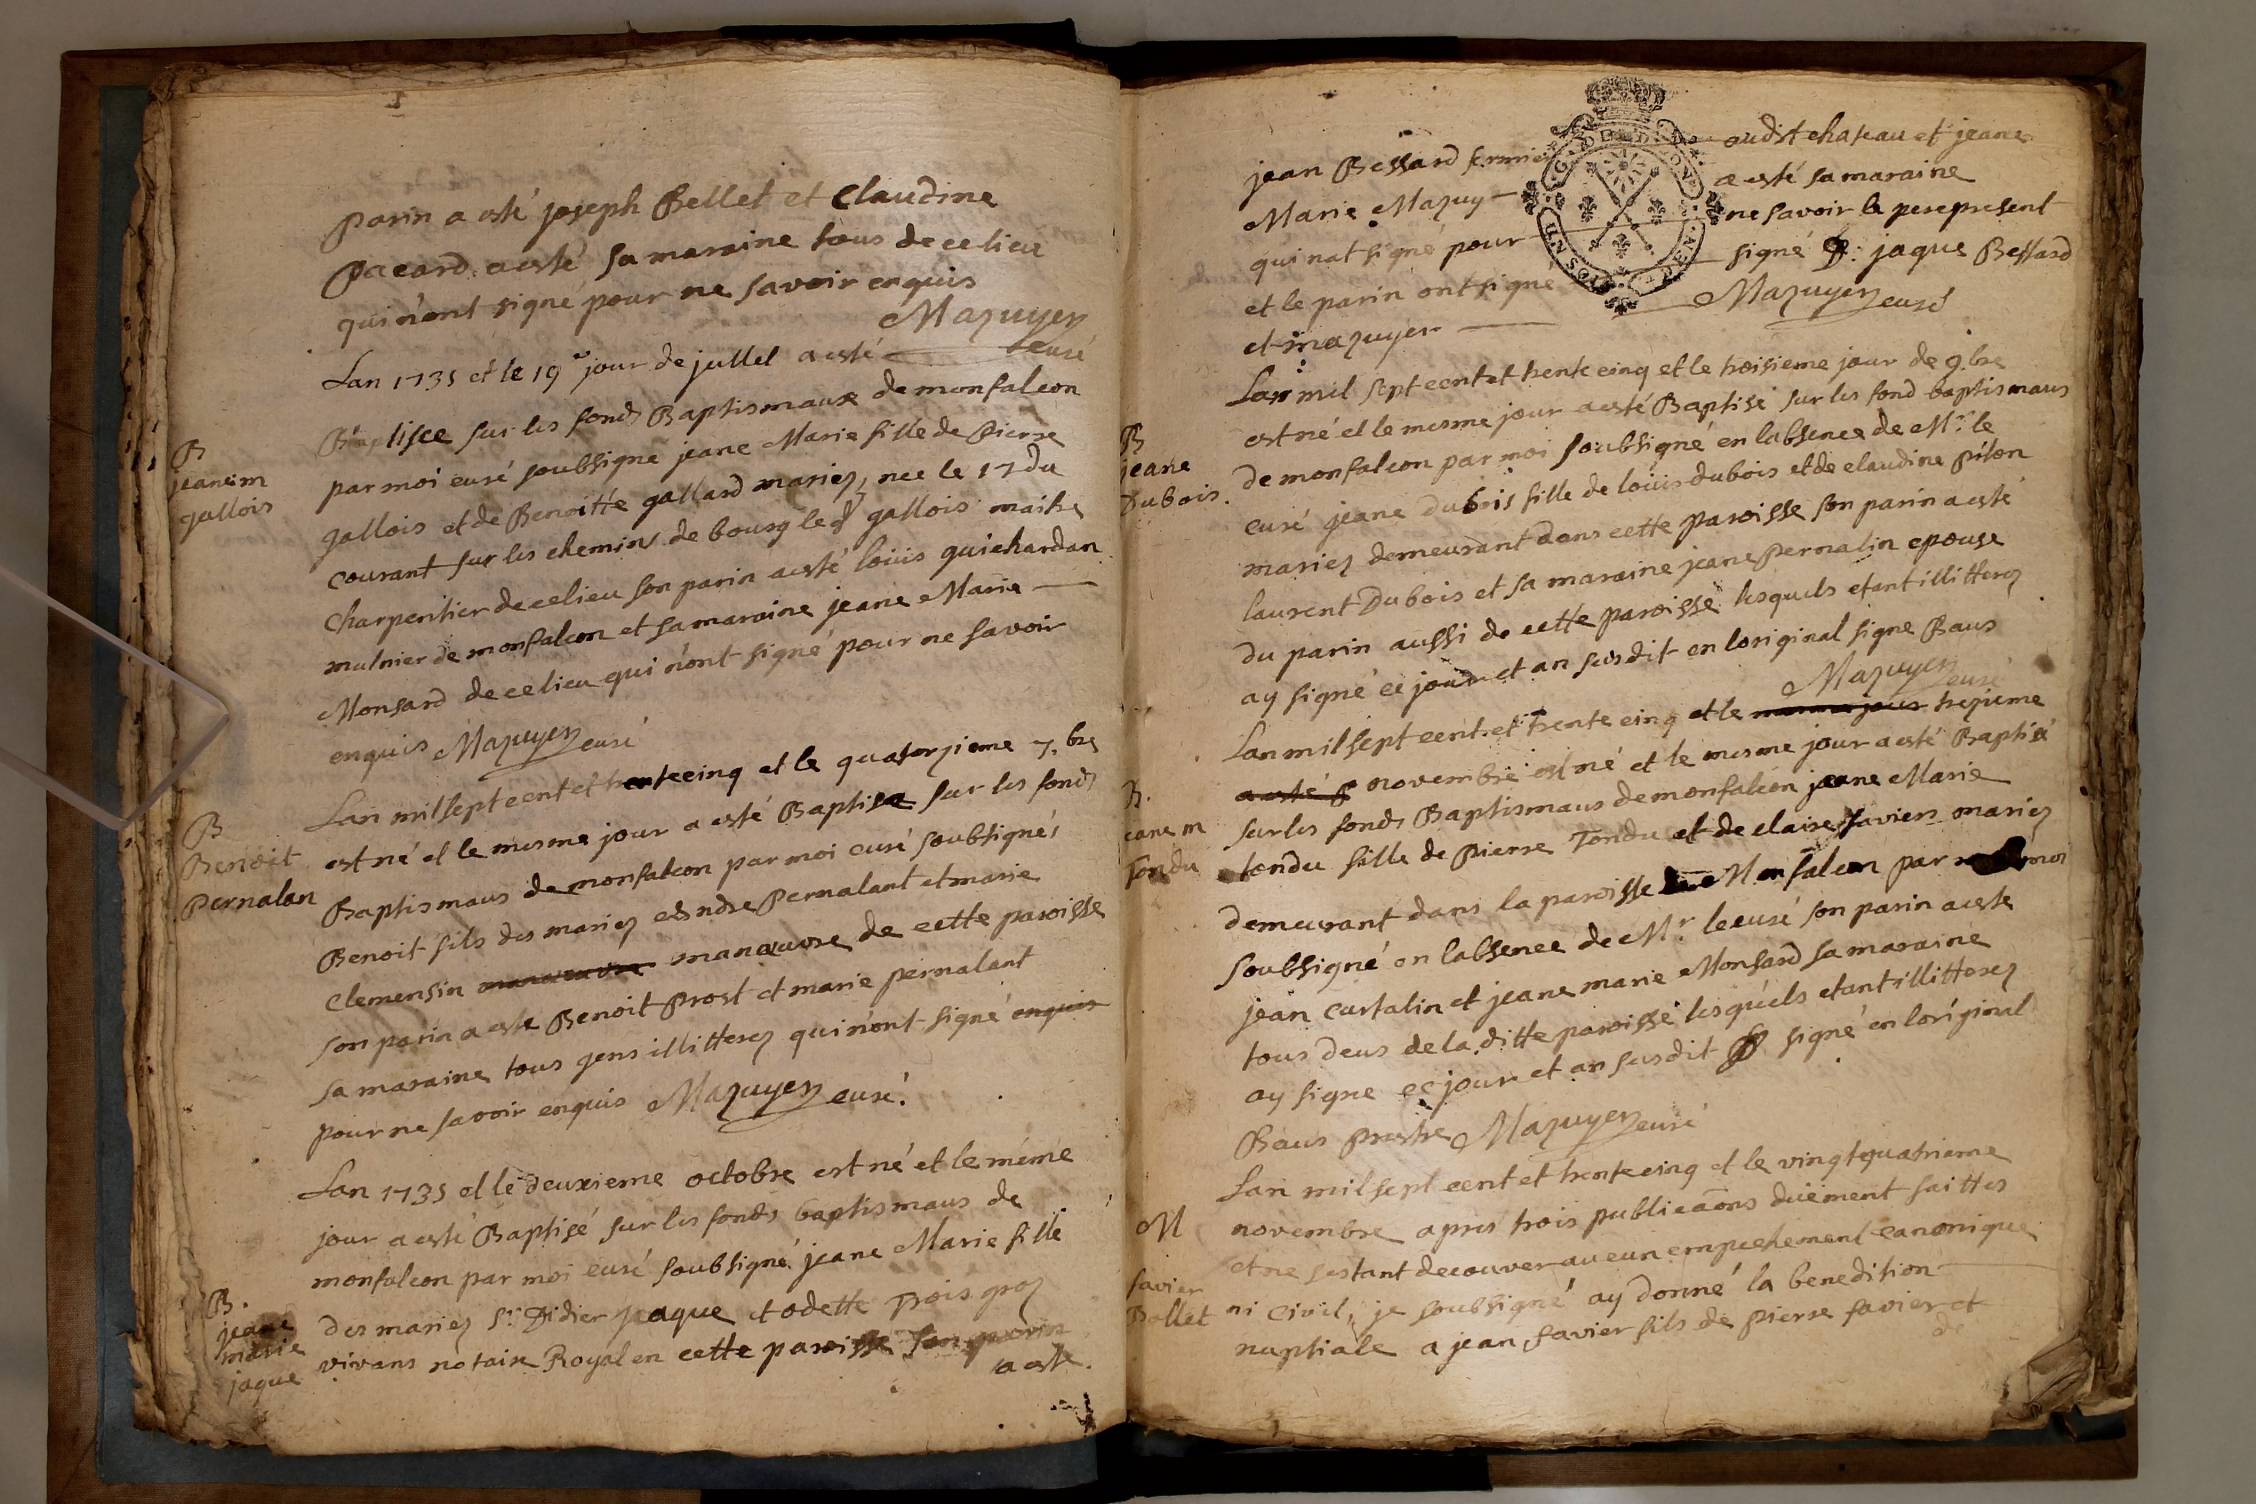 parin a esté joseph Bellet et Claudine
pacard a esté sa maraine tous de ce lieu
qui n'ont signé pour ne savoir enquis
Mazuyer
curé
Lan 1735 et le 19e jour de jullet a esté
B
jeane m
gallois
Baptisee sur les fonds Baptismaux de monfalcon
par moi curé soubsigné jeane Marie fille de Pierre
gallois et de Benoitte gallard mariez, nee le 17 du
courant sur les chemins de bourg led gallois maitre
Charpentier de ce lieu son parin a esté loüis guichardan
mulnier de monfalcon et sa maraine jeane Marie
Monsard de ce lieu qui n'ont signé pour ne savoir
enquis Mazuyer curé
Lan mil sept cent et trente cinq et le quatorzieme 7.bre
B
Benoit
Pernalan
est né et le mesme jour a esté Baptisé sur les fonds
Baptismaus de monfalcon par moi curé soubsignés
Benoit fils des mariez andre Pernalant et marie
Clemensin manœuvre manœuvre de cette paroisse
son parin a esté Benoit Prost et marie pernalant
sa maraine tous gens illitterez qui n'ont signé enquis
pour ne savoir enquis Mazuyer curé.
Lan 1735 et le deuxieme octobre est né et le méme
jour a esté Baptisé sur les fonds baptismaus de
monfalcon par moi curé soubsigné jeane Marie fille
B.
jeane
marie
jaque
des mariez Sr Didier jaque et odette Trois groz
vivans notaire Royal en cette paroisse son parin
a esté
jean Bessard fermier oudit chateau et jeane
Marie Mazuy a esté sa maraine
qui nat signé pour ne savoir le pere present
et le parin ont signé signé jaque Bessard
et mazuyer Mazuyer curé
Lan mil sept cent et trente cinq et le troisieme jour de 9.bre
B
jeane
Dubois.
est né et le mesme jour a esté Baptisé sur les fond baptismaus
de monfalcon par moi soubsigné en labsence de Mr. le
curé jeane dubois fille de loüis dubois et de claudine pilon
mariez demeurant dans cette paroisse son parin a esté
laurent Dubois et sa maraine jeane Pernalin epouse
du parin aussi de cette paroisse lesquels etant illitterez
ay signé ce jour et an susdit en loriginal signe Baus
Mazuyer curé
Lan mil sept cent et trente cinq et le treizieme
B.
jeane m
Tondu
a esté novembre est né et le mesme jour a esté Baptisé
sur les fonds Baptismaus de monfalcon jeane Marie
tondu fille de Pierre Tondu et de claire favier mariez
demeurant dans la paroisse Monfalcon par moi
soubsigné en labsence de Mr. le curé son parin a esté
jean curtalin et jeane marie Monsard sa maraine
tous deus de la ditte paroisse lesquels etant illitterez
ay signe ce jour et an susdit signé en loriginal
Baus prestre Mazuyer curé
Lan mil sept cent et trente cinq et le vingt quatrieme
M
favier
Bollet
novembre apres trois publicaons duëment faittes
et ne sestant decouver aucun empechement canonique
ni civil, je soubsigné ay donné la benedition
nuptiale a jean favier fils de pierre favier et
de